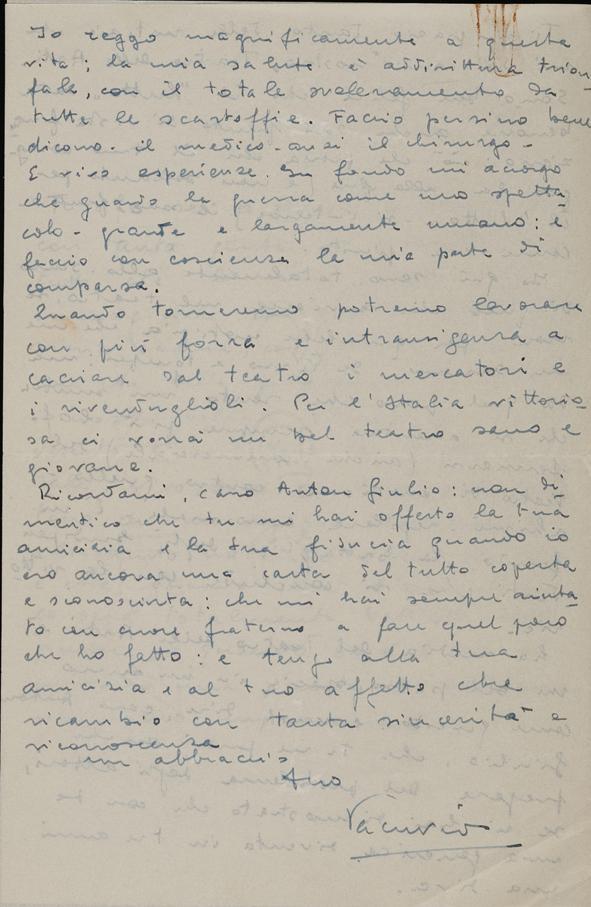 Io reggo magnificamente a questa
vita; la mia salute è addirittura trion-
fale, con il totale svelenamento da
tutte le scartoffie. Faccio persino bene
dicono - il medico - anzi il chirurgo -
E vivo esperienze. In fondo mi accorgo
che guardo la guerra come uno spetta-
colo - grande e largamente umano: e
faccio con coscienza la mia parte di
comparsa.
Quando torneremo potremo lavorare
con più forza e intransigenza a
cacciare dal teatro i mercatori e
i rivenduglioli. Per l'Italia vittorio-
sa ci vorrà un bel teatro sano e
giovane.
Ricordami, caro Anton Giulio: non di-
mentico che tu mi hai offerto la tua
amicizia e la tua fiducia quando io
ero ancora una carta del tutto coperta
e sconosciuta: che mi hai sempre aiuta-
to con cuore fraterno a fare quel poco
che ho fatto: e tengo alla tua
amicizia e al tuo affetto che
ricambio con tanta sincerità e
riconoscenza
un abbraccio
tuo